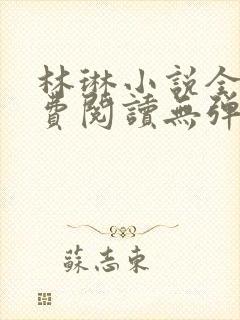 林琳小説全
費閱讀無彈
蘇志東